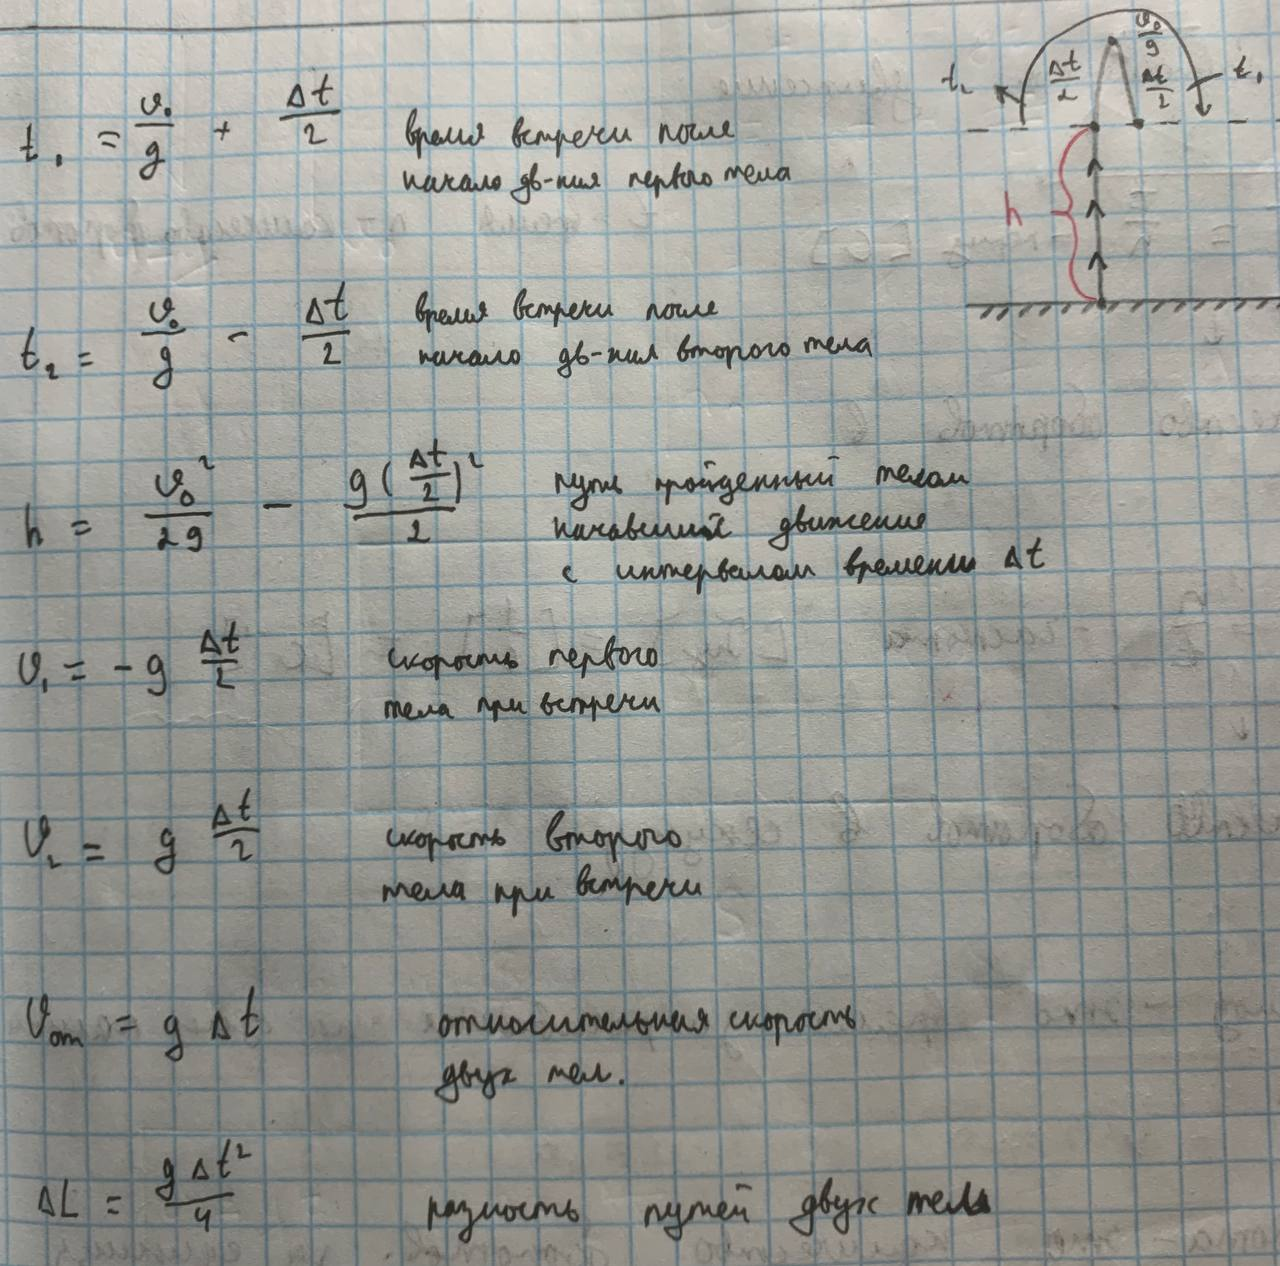 t₁ = v₀/g + Δt/2 время встречи после
начало дв-ния первого тела
t₂ = v₀/g - Δt/2 время встречи после
начало дв-ния второго тела
h = v₀²/2g - g(Δt/2)²/2 путь пройденный телом
начавший движение
с интервалом времени Δt
v₁ = -g Δt/2 скорость первого
тела при встречи
v₂ = g Δt/2 скорость второго
тела при встречи
vот = g Δt относительная скорость
двух тел.
ΔL = gΔt²/4 разность путей двух тел
v₀/g
t₂ Δt/2 Δt/2 t₁
h